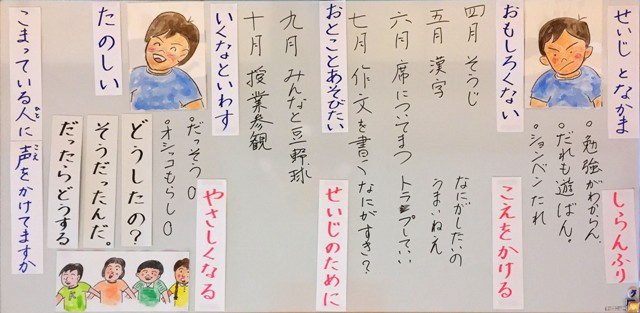 せいじ となかま
しらんふり
○勉強がわからん。
○だれも遊ばん。
○ションベンたれ
おもしろくない
こえをかける
四月 そうじ
なにがしたいの
五月 漢字
うまいねえ
六月 席についてまつ
トランプしてい
七月 作文を書く
なにがすき?
おとことあそびたい
せいじのために
九月 みんなと豆野球
十月 授業参観
いくなといわす
やさしくなる
○だっそう0
○オシッコもらし0
たのしい
どうしたの?
そうだったんだ。
だったらどうする
こまっている人に 声をかけてますか
ひと
こえ